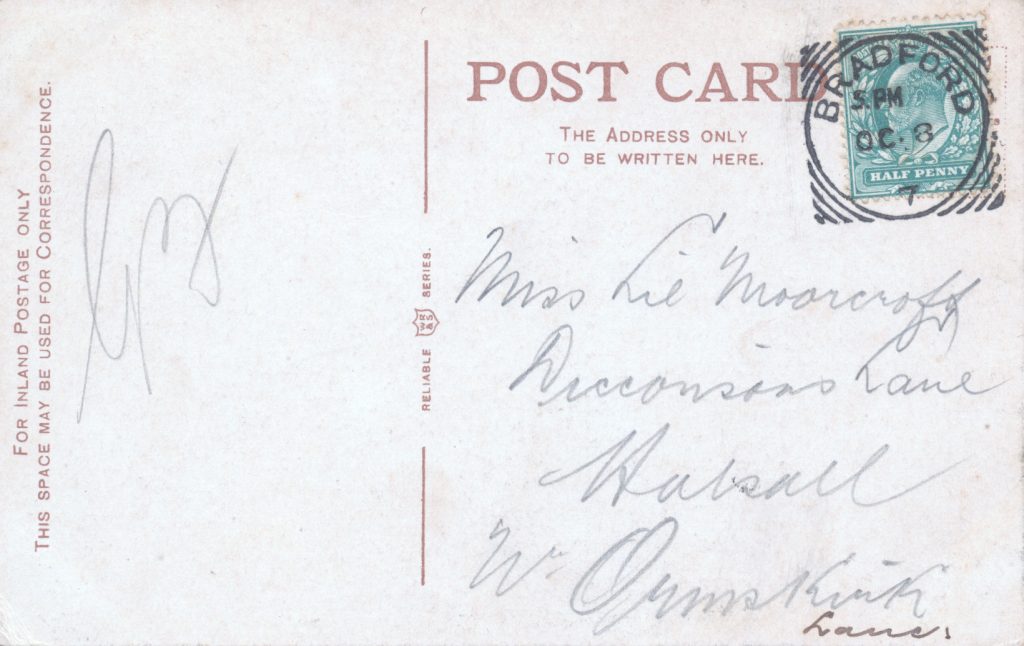 FOR INLAND POSTAGE ONLY
THIS SPACE MAY BE USED FOR CORRESPONDENCE.
RELIABLE WR&S SERIES.
POST CARD
THE ADDRESS ONLY
TO BE WRITTEN HERE.
BRADFORD
5 PM
OC. 8
7
HALF PENNY
Miss Lil Moorcroft
Diccinsons Lane
Halsall
Nr Ormskirk
Lancs.